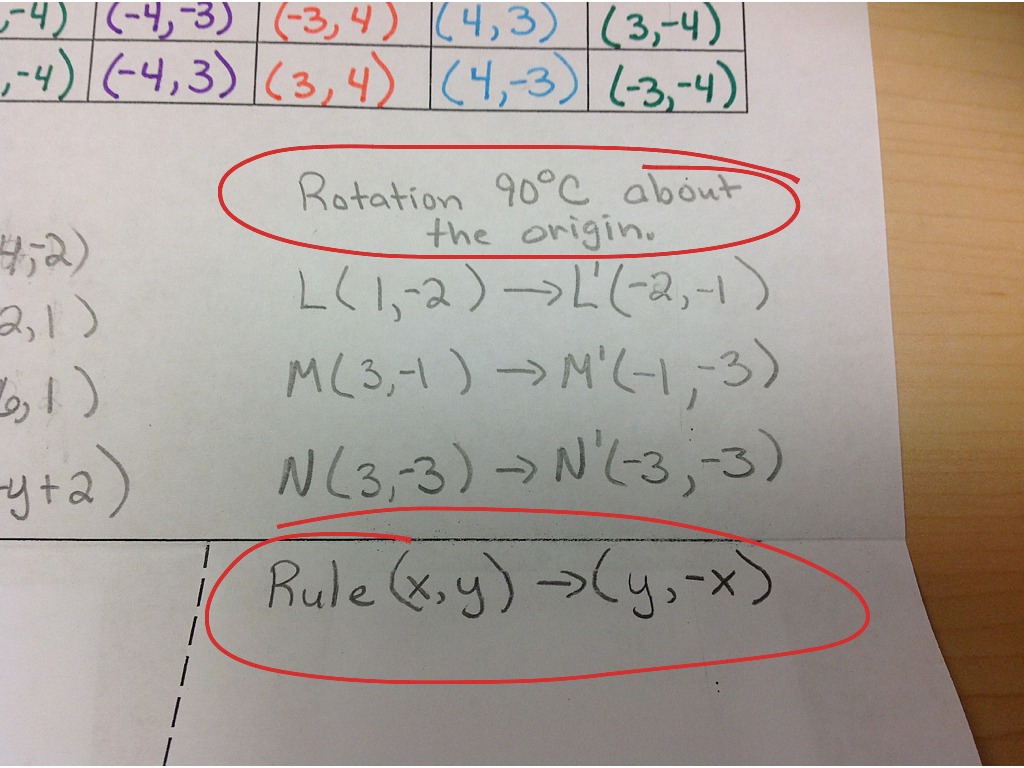 ,-4) (-4,-3) (-3,4) (4,3) (3,-4)
,-4) (-4,3) (3,4) (4,-3) (-3,-4)
Rotation 90°C about
the origin.
4,-2)
L(1,-2) →L'(-2,-1)
2,1)
M(3,-1) →M'(-1,-3)
6,1)
N(3,-3) →N'(-3,-3)
-y+2)
Rule (x,y) →(y,-x)